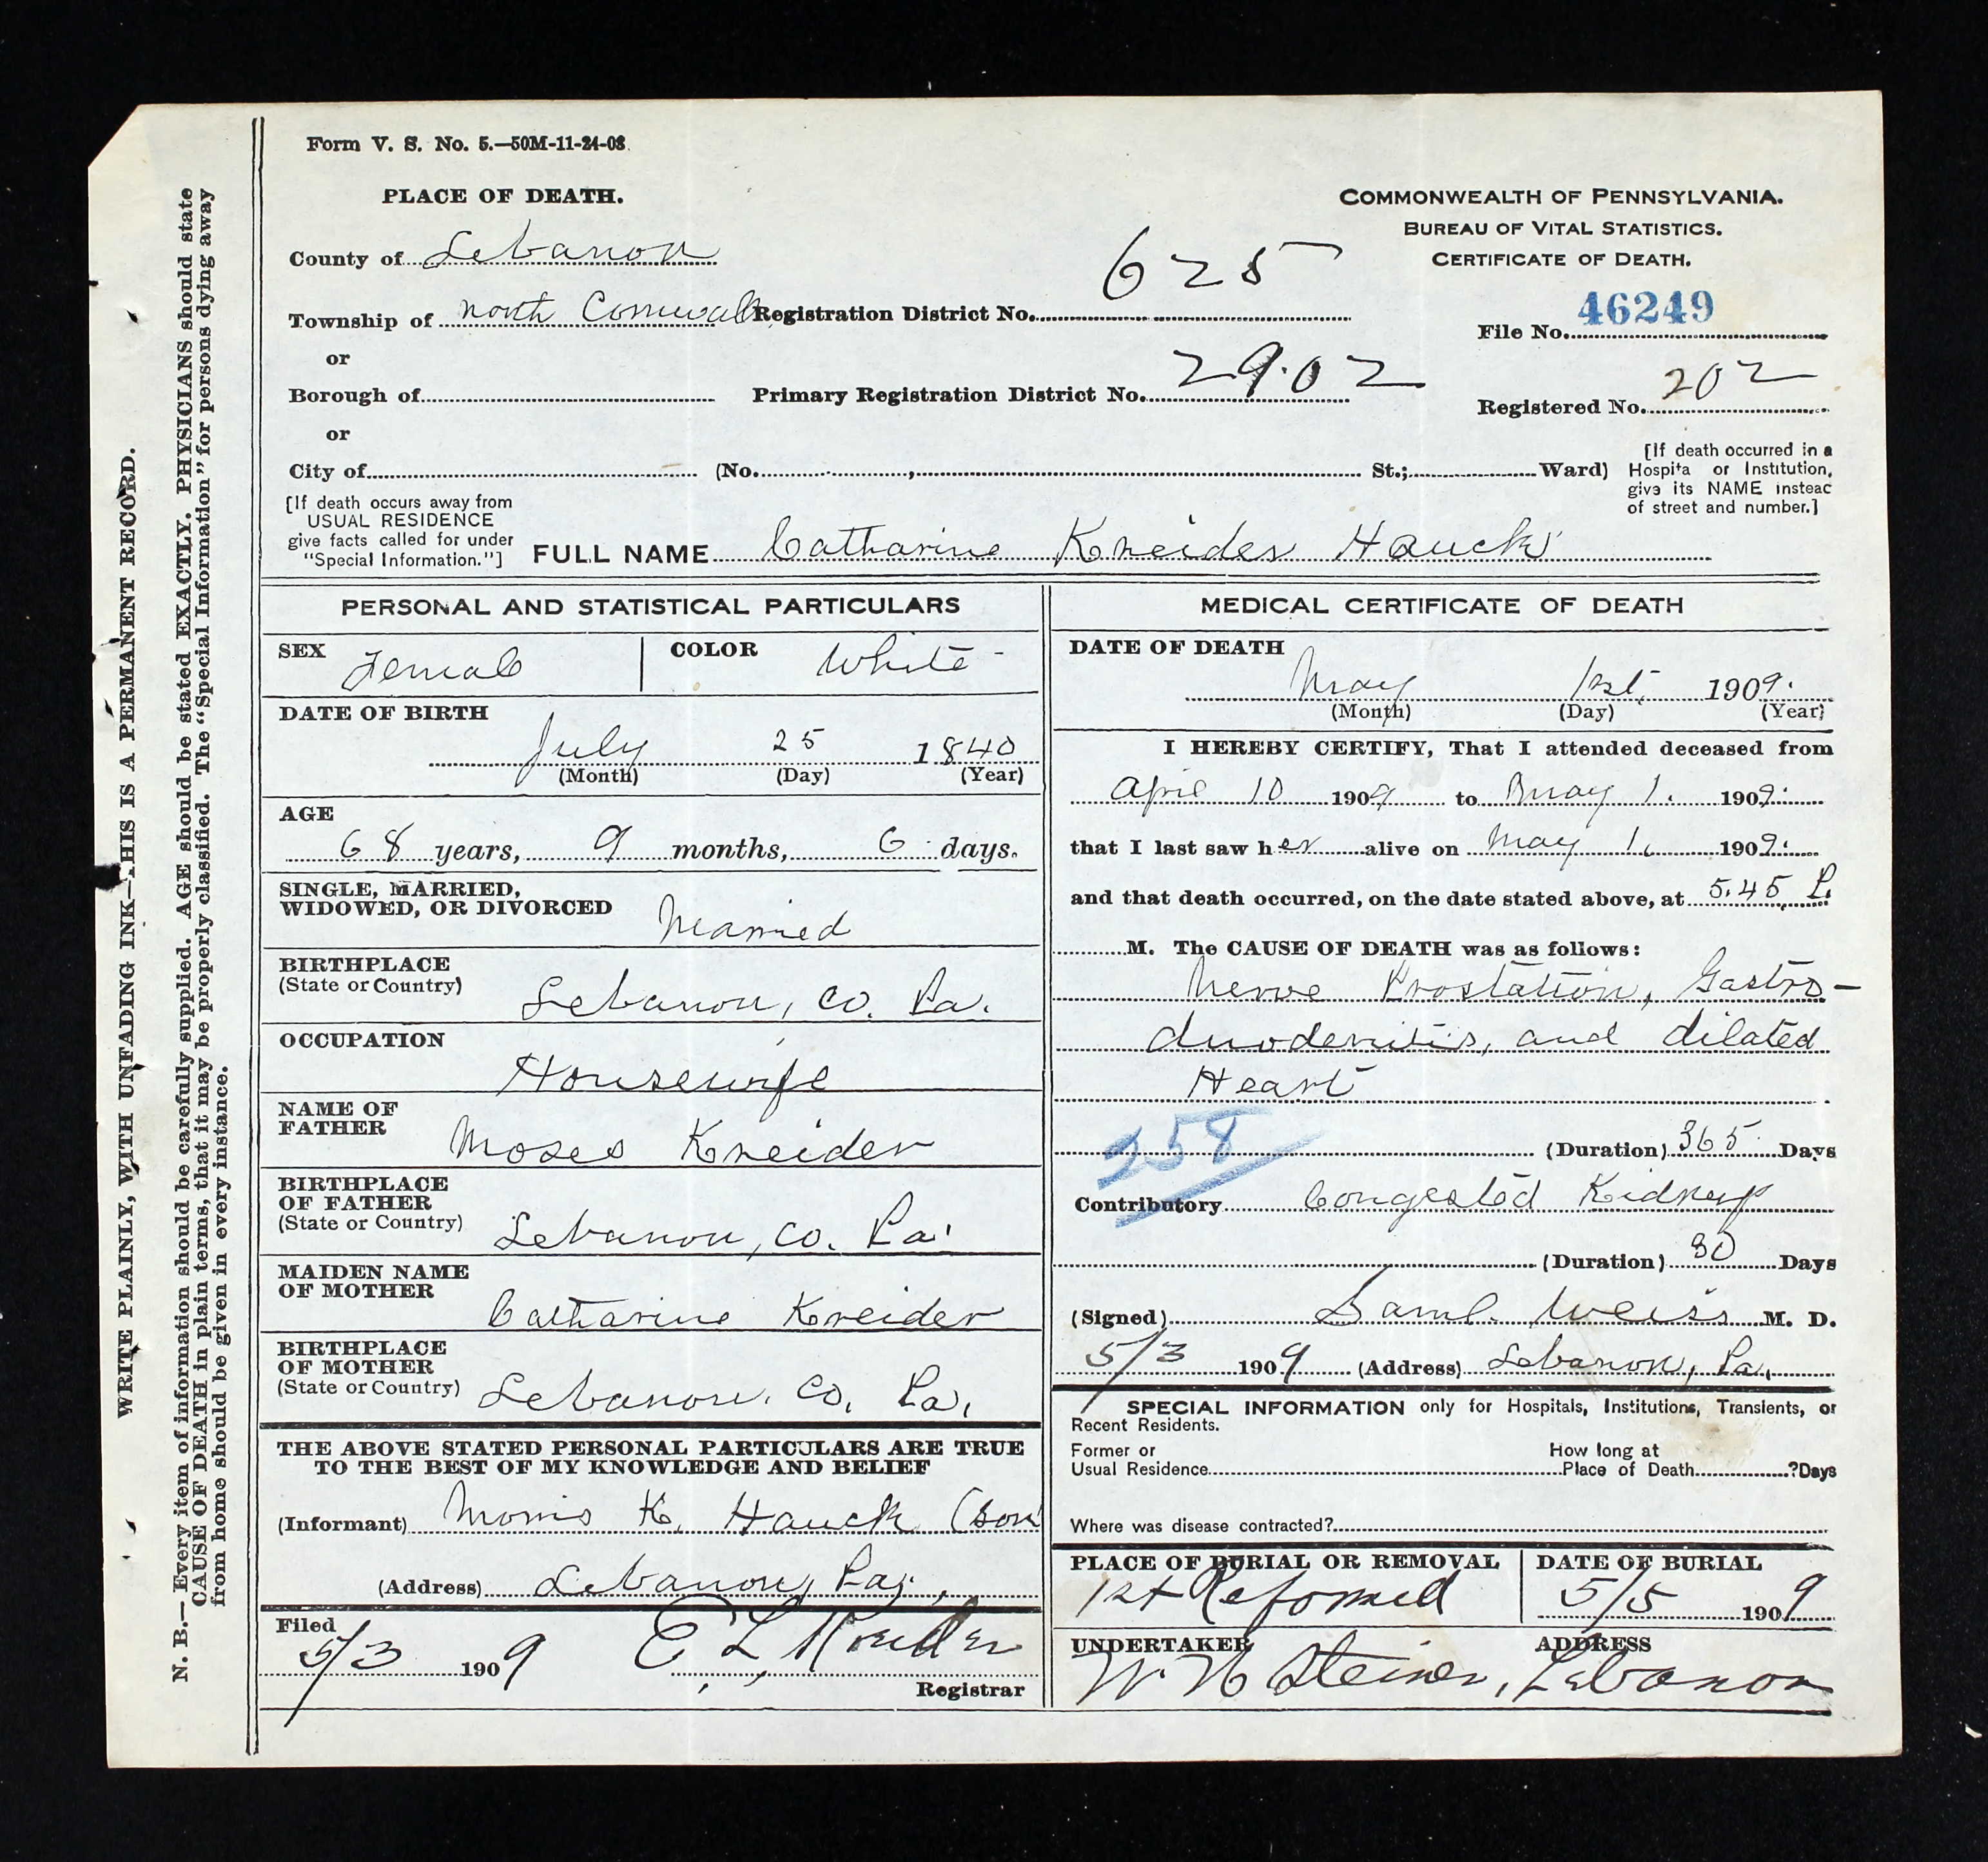 Form V. S. No. 5.—50M-11-24-08
PLACE OF DEATH.
County of Lebanon
Township of North Cornwall
or
Borough of
or
City of (No. , St.; Ward)
[If death occurs away from
USUAL RESIDENCE
give facts called for under
"Special Information."]
COMMONWEALTH OF PENNSYLVANIA.
BUREAU OF VITAL STATISTICS.
CERTIFICATE OF DEATH.
Registration District No. 625
File No. 46249
Primary Registration District No. 29.02
Registered No. 202
[If death occurred in a
Hospita or Institution,
give its NAME insteac
of street and number.]
FULL NAME Catharine Kreider Hauck
PERSONAL AND STATISTICAL PARTICULARS
SEX Female COLOR White
DATE OF BIRTH
July 25 1840
(Month) (Day) (Year)
AGE
68 years, 9 months, 6 days.
SINGLE, MARRIED,
WIDOWED, OR DIVORCED Married
BIRTHPLACE
(State or Country) Lebanon, Co. Pa.
OCCUPATION
Housewife
NAME OF
FATHER Moses Kreider
BIRTHPLACE
OF FATHER
(State or Country) Lebanon, Co. Pa.
MAIDEN NAME
OF MOTHER Catharine Kreider
BIRTHPLACE
OF MOTHER
(State or Country) Lebanon, Co. Pa.
THE ABOVE STATED PERSONAL PARTICULARS ARE TRUE
TO THE BEST OF MY KNOWLEDGE AND BELIEF
(Informant) Morris K. Hauck (son
(Address) Lebanon, Pa.,
Filed
5/3 1909 E. L. Kreider
Registrar
MEDICAL CERTIFICATE OF DEATH
DATE OF DEATH
May 1st, 1909.
(Month) (Day) (Year)
I HEREBY CERTIFY, That I attended deceased from
April 10 1909 to May 1. 1909.
that I last saw her alive on May 1, 1909.
and that death occurred, on the date stated above, at 5.45 P.
M. The CAUSE OF DEATH was as follows:
Nerve Prostation, Gastro-
duodenitis, and dilated
Heart
258
(Duration) 365 Days
Contributory Congested Kidneys
(Duration) 30 Days
(Signed) Saml. Weiss M. D.
5/3 1909 (Address) Lebanon, Pa.
SPECIAL INFORMATION only for Hospitals, Institutions, Transients, or
Recent Residents.
Former or
Usual Residence
How long at
Place of Death ?Days
Where was disease contracted?
PLACE OF BURIAL OR REMOVAL
1st Reformed
DATE OF BURIAL
5/5 1909
UNDERTAKER ADDRESS
W H Steiner, Lebanon
WRITE PLAINLY, WITH UNFADING INK—THIS IS A PERMANENT RECORD.
N. B.—Every item of information should be carefully supplied. AGE should be stated EXACTLY. PHYSICIANS should state
CAUSE OF DEATH in plain terms, that it may be properly classified. The "Special Information" for persons dying away
from home should be given in every instance.